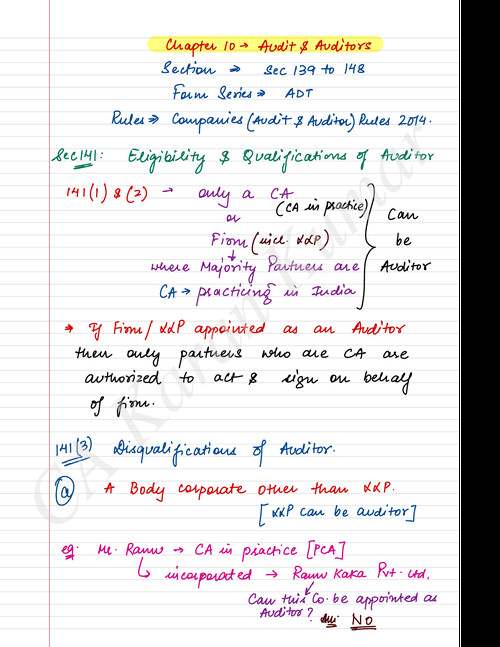 Chapter 10 → Audit & Auditors
Section ⇒ Sec 139 to 148
Form Series ⇒ ADT
Rules ⇒ Companies (Audit & Auditor) Rules 2014.
Sec 141: Eligibility & Qualifications of Auditor
141(1) & (2) → only a CA
(CA in practice)
or
Firm (incl. LLP)
where Majority Partners are
CA → practicing in India
Can
be
Auditor
→ If Firm/LLP appointed as an Auditor
then only partners who are CA are
authorized to act & sign on behalf
of firm.
141(3) Disqualifications of Auditor.
(a) A Body corporate other than LLP.
[LLP can be auditor]
eg: Mr. Ramu → CA in practice [PCA]
↳ incorporated → Ramu Kaka Pvt. Ltd.
Can this Co. be appointed as
Auditor? Ans: No
CA Karan Kumar